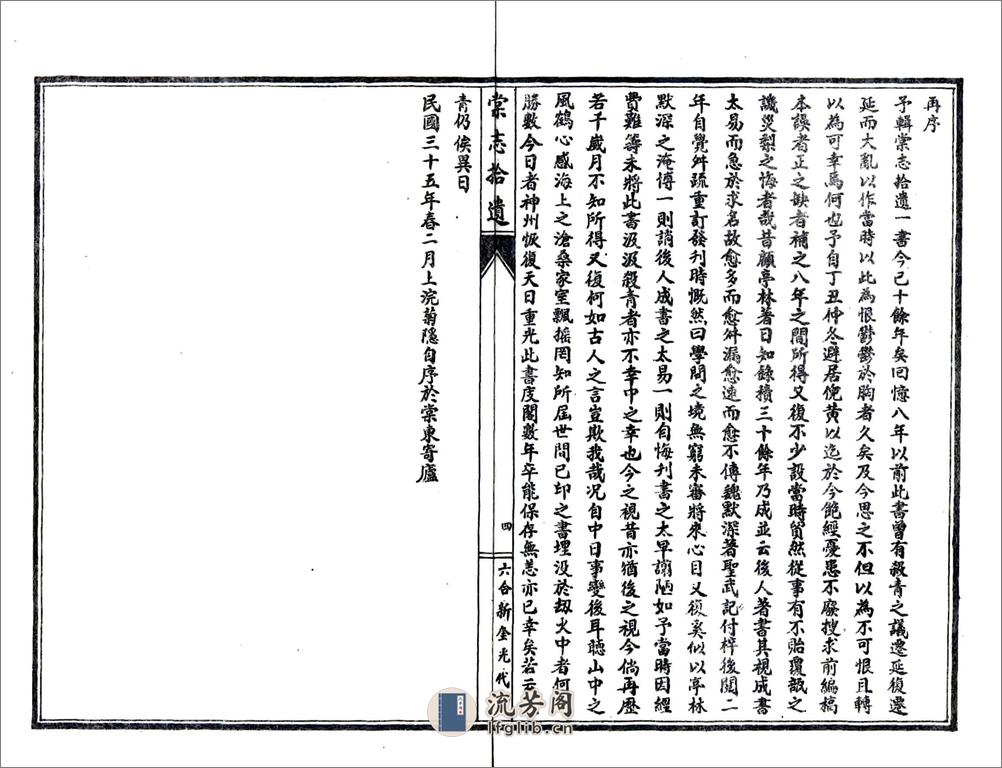 再序
予輯棠志拾遺一書今已十餘年矣回憶八年以前此書曾有殺青之議遷延復遷
延而大亂以作當時以此為恨鬱鬱於胸者久矣及今思之不但以為不可恨且轉
以為可幸焉何也予自丁丑仲冬避居倪黃以迄於今飽經憂患不廢搜求前編稿
本誤者正之缺者補之八年之間所得又復不少設當時貿然從事有不貽覆瓿之
譏災梨之悔者哉昔顧亭林著日知錄積三十餘年乃成並云後人著書其視成書
太易而急於求名故愈多而愈舛漏愈速而愈不傳魏默深著聖武記付梓後閱二
年自覺舛疏重訂發刊時慨然曰學問之境無窮未審將來心目又復奚似以亭林
默深之淹博一則誚後人成書之太易一則自悔刊書之太早謭陋如予當時因經
費難籌未將此書汲汲殺青者亦不幸中之幸也今之視昔亦猶後之視今倘再歷
若干歲月不知所得又復何如古人之言豈欺我哉况自中日事變後耳聽山中之
風鶴心感海上之滄桑家室飄搖罔知所屆世間已印之書埋没於刼火中者何
勝數今日者神州恢復天日重光此書庋閣數年卒能保存無恙亦已幸矣若云
棠志拾遺
四
六合新金光代
青仍俟異日
民國三十五年春二月上浣菊隱自序於棠東寄廬
流芳阁
lfglib.com